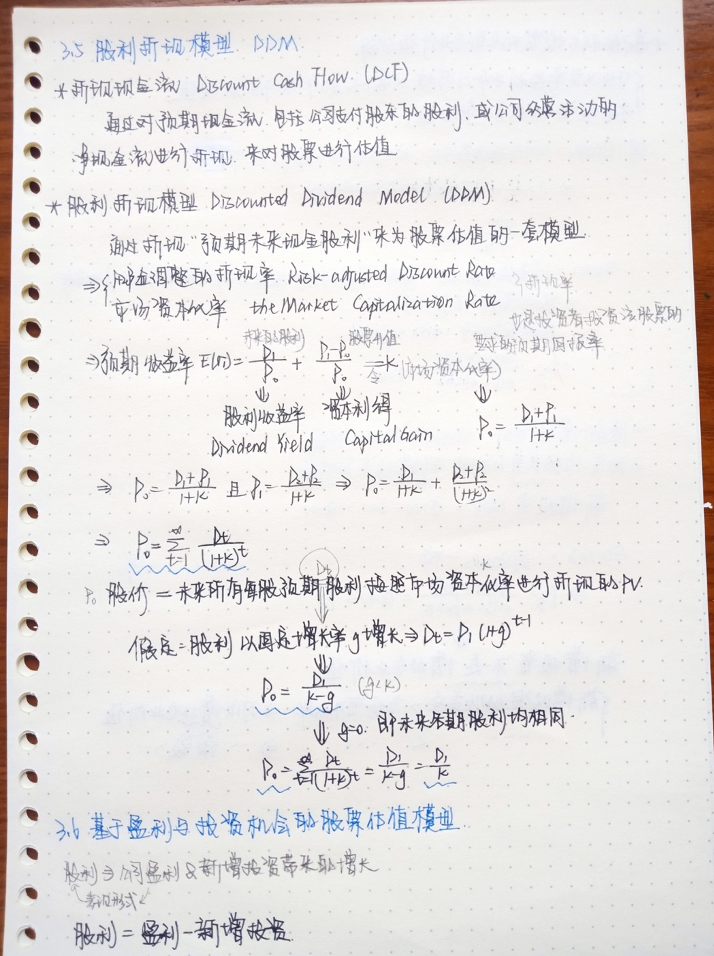 3.5 股利折现模型 DDM
* 折现现金流 Discount Cash Flow (DCF)
通过对预期现金流, 包括公司支付股东的股利、或公司经营活动的
净现金流进行折现 来对股票进行估值
* 股利折现模型 Discounted Dividend Model (DDM)
通过折现“预期未来现金股利”来为股票估值的一套模型
⇒ 风险调整的折现率 Risk-adjusted Discount Rate
市场资本化率 the Market Capitalization Rate
折现率
也是投资者投资该股票的
要求的预期回报率
未来的股利 股票价值
⇒ 预期收益率 E(r) = D₁/P₀ + (P₁-P₀)/P₀ = k (市场资本化率)
令
股利收益率 资本利得
Dividend Yield Capital Gain P₀ = (D₁+P₁)/(1+k)
⇒ P₀ = (D₁+P₁)/(1+k) 且 P₁ = (D₂+P₂)/(1+k) ⇒ P₀ = D₁/(1+k) + (D₂+P₂)/(1+k)²
⇒ P₀ = ∑_{t=1}^{∞} Dt/(1+k)^t
Dt k
P₀ 股价 = 未来所有每股预期股利按照市场资本化率进行折现的PV.
假定: 股利以固定增长率g增长 ⇒ Dt = D₁(1+g)^{t-1}
P₀ = D₁/(k-g) (g<k)
g=0. 即未来每期股利均相同.
P₀ = ∑_{t=1}^{∞} Dt/(1+k)^t = D₁/(k-g) = D₁/k
3.6 基于盈利与投资机会的股票估值模型
股利 ⇒ 公司盈利 & 新增投资带来的增长
表现形式
股利 = 盈利 - 新增投资